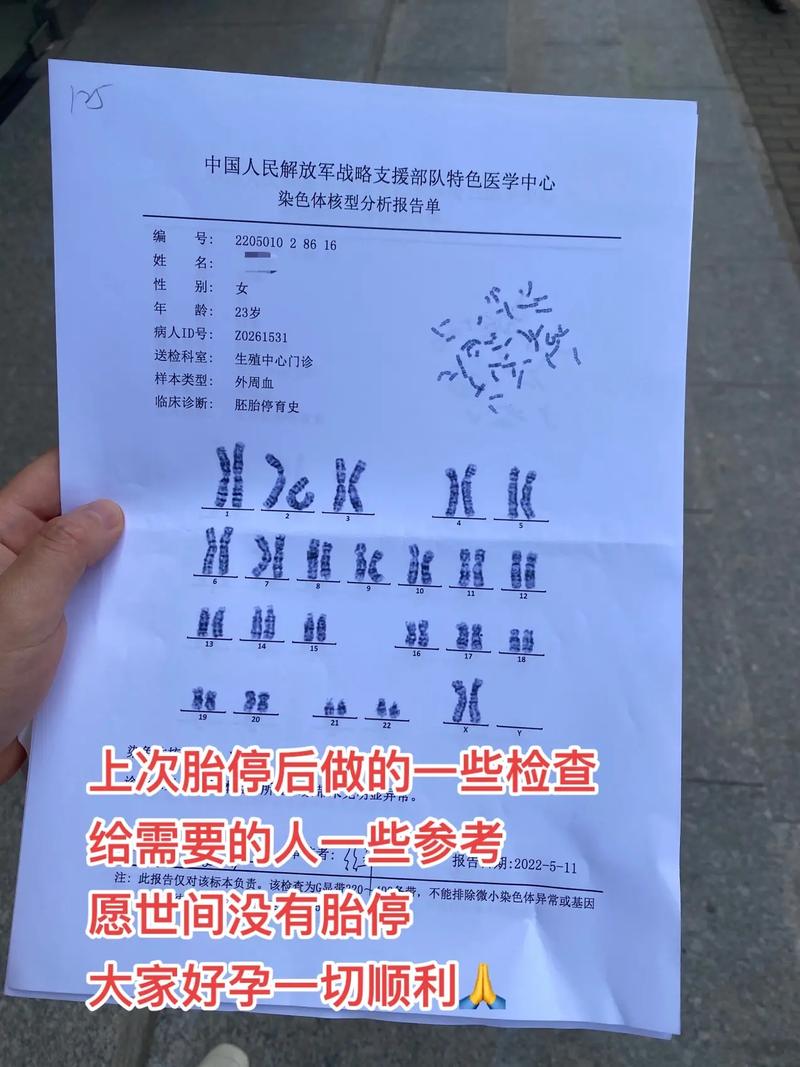 125
中国人民解放军战略支援部队特色医学中心
染色体核型分析报告单
编 号: 2205010 2 86 16
姓 名:
性 别: 女
年 龄: 23岁
病人ID号: Z0261531
送检科室: 生殖中心门诊
样本类型: 外周血
临床诊断: 胚胎停育史
1 2 3 4 5
6 7 8 9 10 11 12
13 14 15 16 17 18
19 20 21 22 X Y
染色体核
见明显异常。
上次胎停后做的一些检查
给需要的人一些参考
者: 报告日期:2022-5-11
注: 此报告仅对该标本负责。该检查为G显带320~400条带, 不能排除微小染色体异常或基因
愿世间没有胎停
大家好孕一切顺利🙏